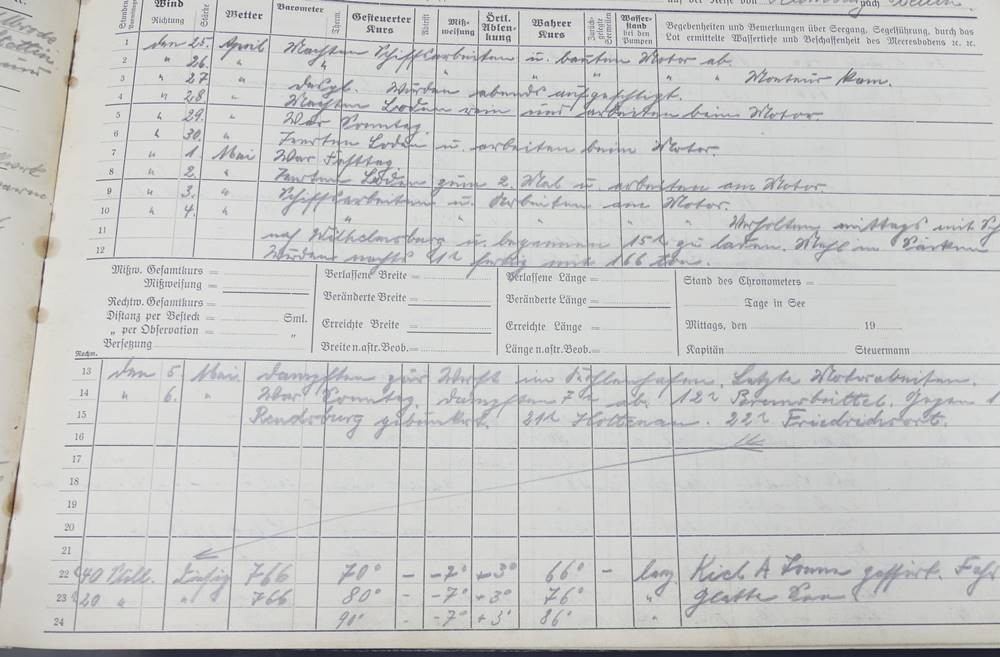 auf der Reise von Hamburg nach
Stunden Wind Richtung Stärke Wetter Barometer Therm. Gesteuerter Kurs Abtrift Mißweisung Örtl. Ablenkung Wahrer Kurs Zurückgelegte Seemeilen Wasserstand bei den Pumpen Begegenheiten und Bemerkungen über Seegang, Segelführung, durch das Lot ermittelte Wassertiefe und Beschaffenheit des Meeresbodens ꝛc. ꝛc.
1 den 25. April Machten Schiffsarbeiten u. bauten Motor ab.
2 " 26. " " " " " " Monteur kam.
3 " 27 " desgl. Wurden abends aufgefertigt.
4 " 28. " Machten Loden rein und arbeiten beim Motor
5 " 29. " War Sonntag.
6 " 30. " Loden u. arbeiten beim Motor.
7 " 1. Mai War Festtag.
8 " 2. " Loden zum 2. Mal u. arbeiten am Motor.
9 " 3. " Schiffsarbeiten u. Arbeiten am Motor.
10 " 4. " " " " " Verholten mittags mit
11 nach Wilhelmsburg u. begannen 15h zu laden. Mehl in Säcken
12 Wurden nachts 21h fertig mit 166 ton.
Mißw. Gesamtkurs =
Mißweisung =
Rechtw. Gesamtkurs =
Distanz per Besteck = Sml.
„ per Observation = „
Versetzung
Verlassene Breite =
Veränderte Breite =
Erreichte Breite =
Breiten.astr.Beob.=
Verlassene Länge =
Veränderte Länge =
Erreichte Länge =
Länge n.astr.Beob.=
Stand des Chronometers =
Tage in See
Mittags, den 19
Kapitän Steuermann
13 den 5. Mai. dampften zur Werft im Kohlenhafen. Letzte Motorabeiten.
14 " 6. " War Sonntag. dampften 7h ab. 12h Brunsbüttel. Gegen
15 Rendsburg gebunkert. 21h Holtenau. 22h Friedrichsort.
16
17
18
19
20
21
22 40 Still. Diesig 766 70° - -7° +3° 66° - lenz. Kiel A Tonne
23 20 " " 766 80° - -7° +3° 76° " glatte See
24 90° - -7° +3° 86° "